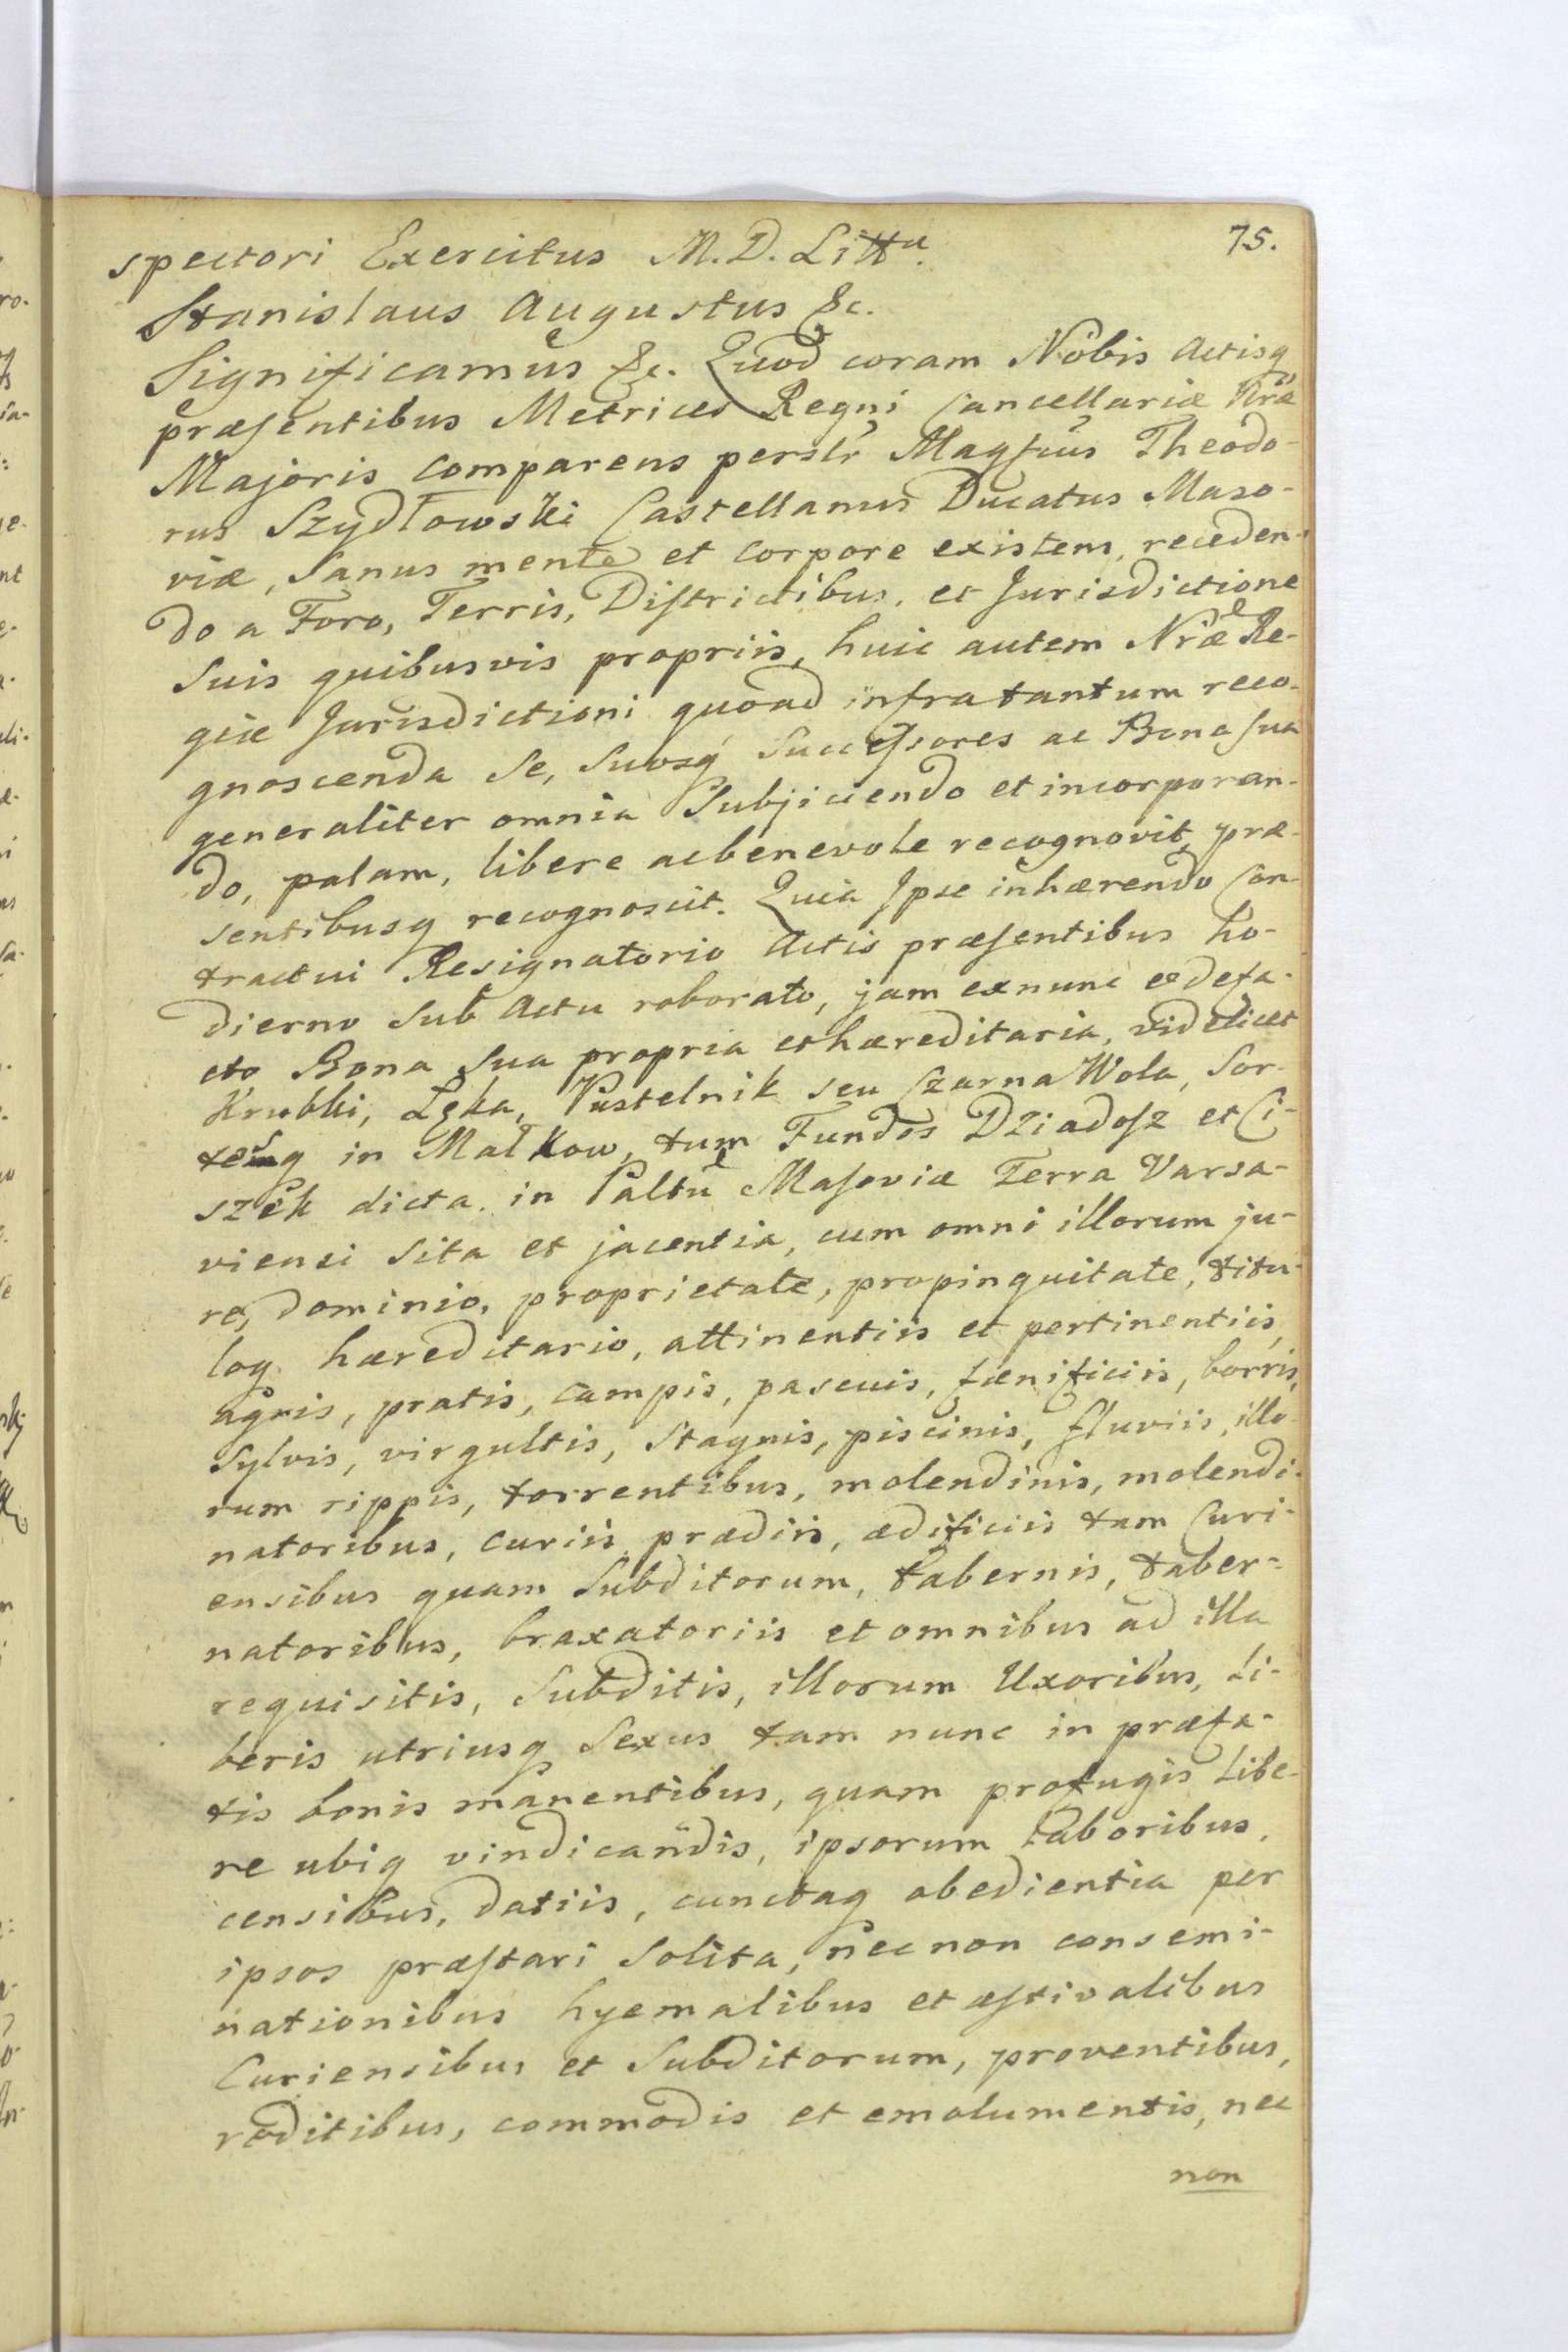 75.
spectori Exercitus M. D. Littu.
Stanislaus Augustus &c.
Significamus &c. Quod coram Nobis Actisq
præsentibus Metrices Regni Cancellariæ Nræ
Majoris comparens perslr Magfcus Theodo-
rus Szydłowski Castellanus Ducatus Maso-
viæ, Sanus mente et corpore existens, receden-
do a Foro, Terris, Districtibus, et Jurisdictione
Suis quibusvis propriis, huic autem Nræ Re-
giæ Jurisdictioni quoad infratantum reco-
gnoscenda Se, Suosq Successores ac Bona sua
generaliter omnia Subjiciendo et incorporan-
do, palam, libere ac benevole recognovit, præ-
sentibusq recognoscit. Quia Ipse inhærendo Con-
tractui Resignatorio Actis præsentibus ho-
dierno sub Actu roborato, jam exnunc et defa-
cto Bona Sua propria et hæreditaria, videlicet
Krubki, Lęka, Pustelnik seu Czarna Wola, Sor-
temq in Malkow, tum Fundos Dziadosz et Ci-
szek dicta. in Paltu Masoviæ Terra Varsa-
viensi Sita et jacentia, cum omni illorum ju-
re, dominio, proprietate, propinquitate, titu-
loq hæreditario, attinentiis et pertinentiis,
agris, pratis, campis, pascuis, fœnificiis, borris,
Sylvis, virgultis, Stagnis, piscinis, fluviis, illo-
rum rippis, torrentibus, molendinis, molendi-
natoribus, curiis prædiis, ædificiis tam Curi-
ensibus quam Subditorum, tabernis, taber-
natoribus, braxatoriis et omnibus ad illa
requisitis, Subditis, illorum Uxoribus, Li-
beris utriusq Sexus tam nunc in præfa-
tis bonis manentibus, quam profugis libe-
re ubiq vindicandis, ipsorum laboribus,
censibus, datiis, cunctaq obedientia per
ipsos præstari Solita, nec non consemi-
nationibus hyemalibus et æstivalibus
Curiensibus et Subditorum, proventibus,
reditibus, commodis et emolumentis, nec
non